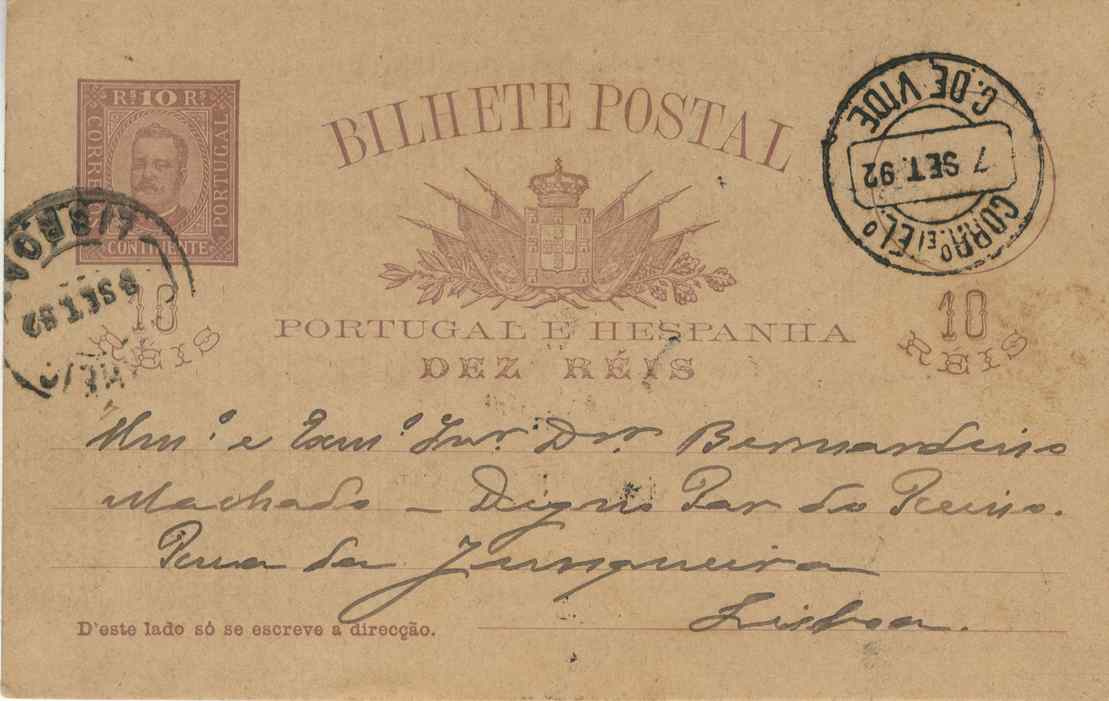 Rs 10 Rs
CORRE
PORTUGAL
CONTINENTE
BILHETE POSTAL
C. DE VIDE
7 SET. 92
CORRo. EI ELo
LISBOA
8 SET. 92
10
RÉIS
PORTUGAL E HESPANHA
DEZ RÉIS
10
RÉIS
Illmo. e Exmo. Snr. Dr. Bernardino
Machado – Digno Par do Reino.
Rua da Junqueira
Lisboa.
D'este lado só se escreve a direcção.